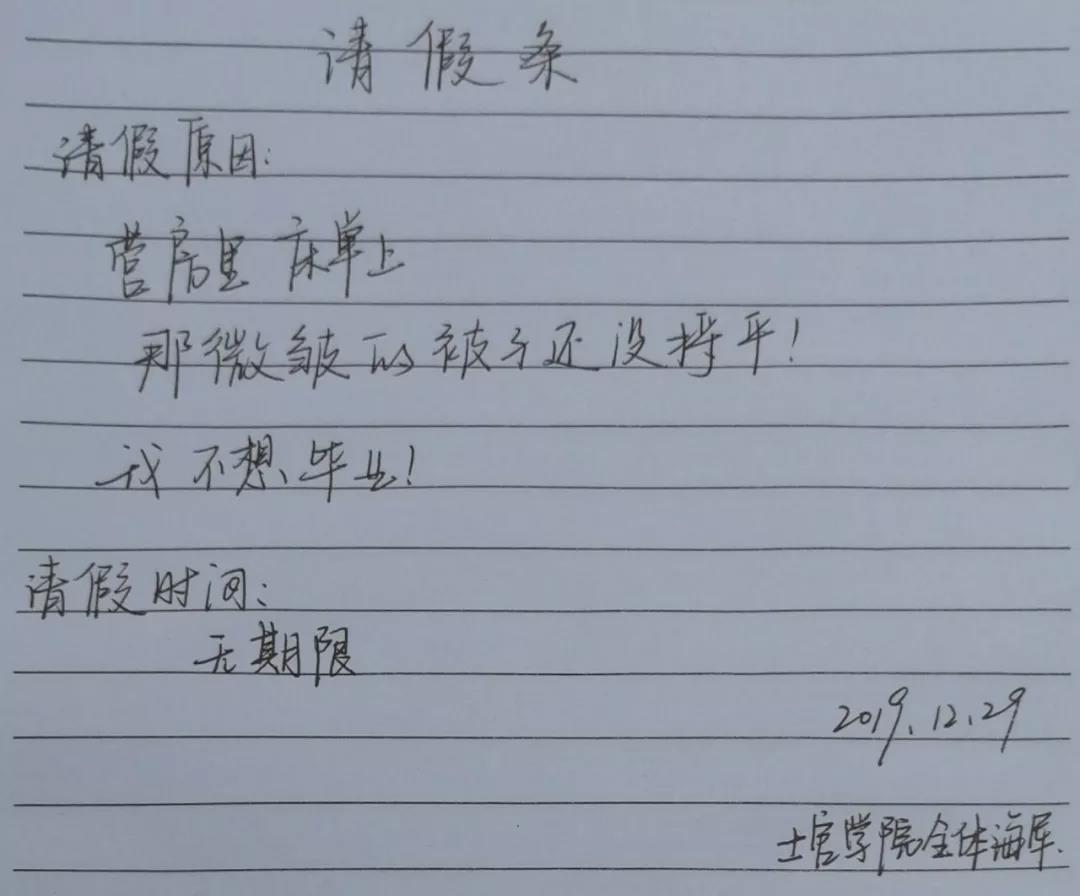 请假条
请假原因:
营房里 床单上
那微皱的被子还没捋平!
我不想毕业!
请假时间:
无期限
2019.12.29
士官学院全体海军.